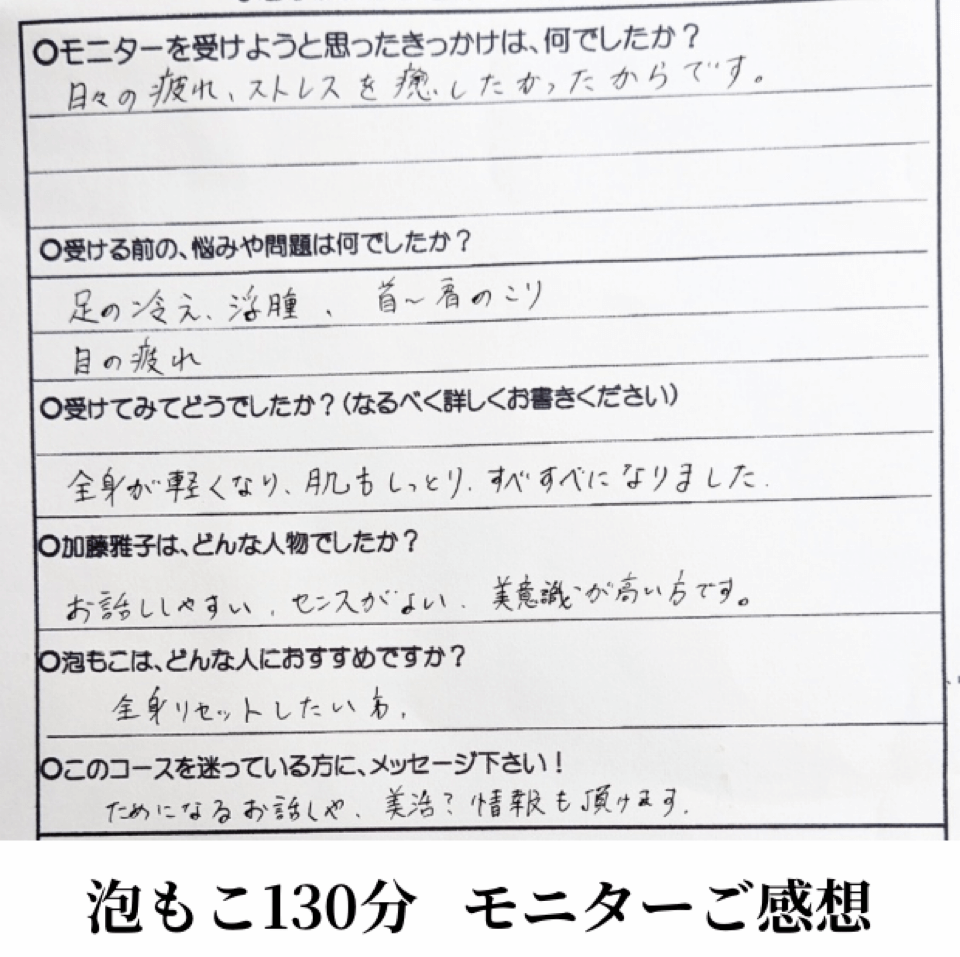 ○モニターを受けようと思ったきっかけは、何でしたか？
日々の疲れ、ストレスを癒したかったからです。
○受ける前の、悩みや問題は何でしたか？
足の冷え、浮腫、首～肩のこり
目の疲れ
○受けてみてどうでしたか？(なるべく詳しくお書きください)
全身が軽くなり、肌もしっとり、すべすべになりました.
○加藤雅子は、どんな人物でしたか？
お話ししやすい、センスがよい、美意識が高い方です。
○泡もこは、どんな人におすすめですか？
全身リセットしたい方、
○このコースを迷っている方に、メッセージ下さい！
ためになるお話しや、美活？情報も頂けます.
泡もこ130分 モニターご感想